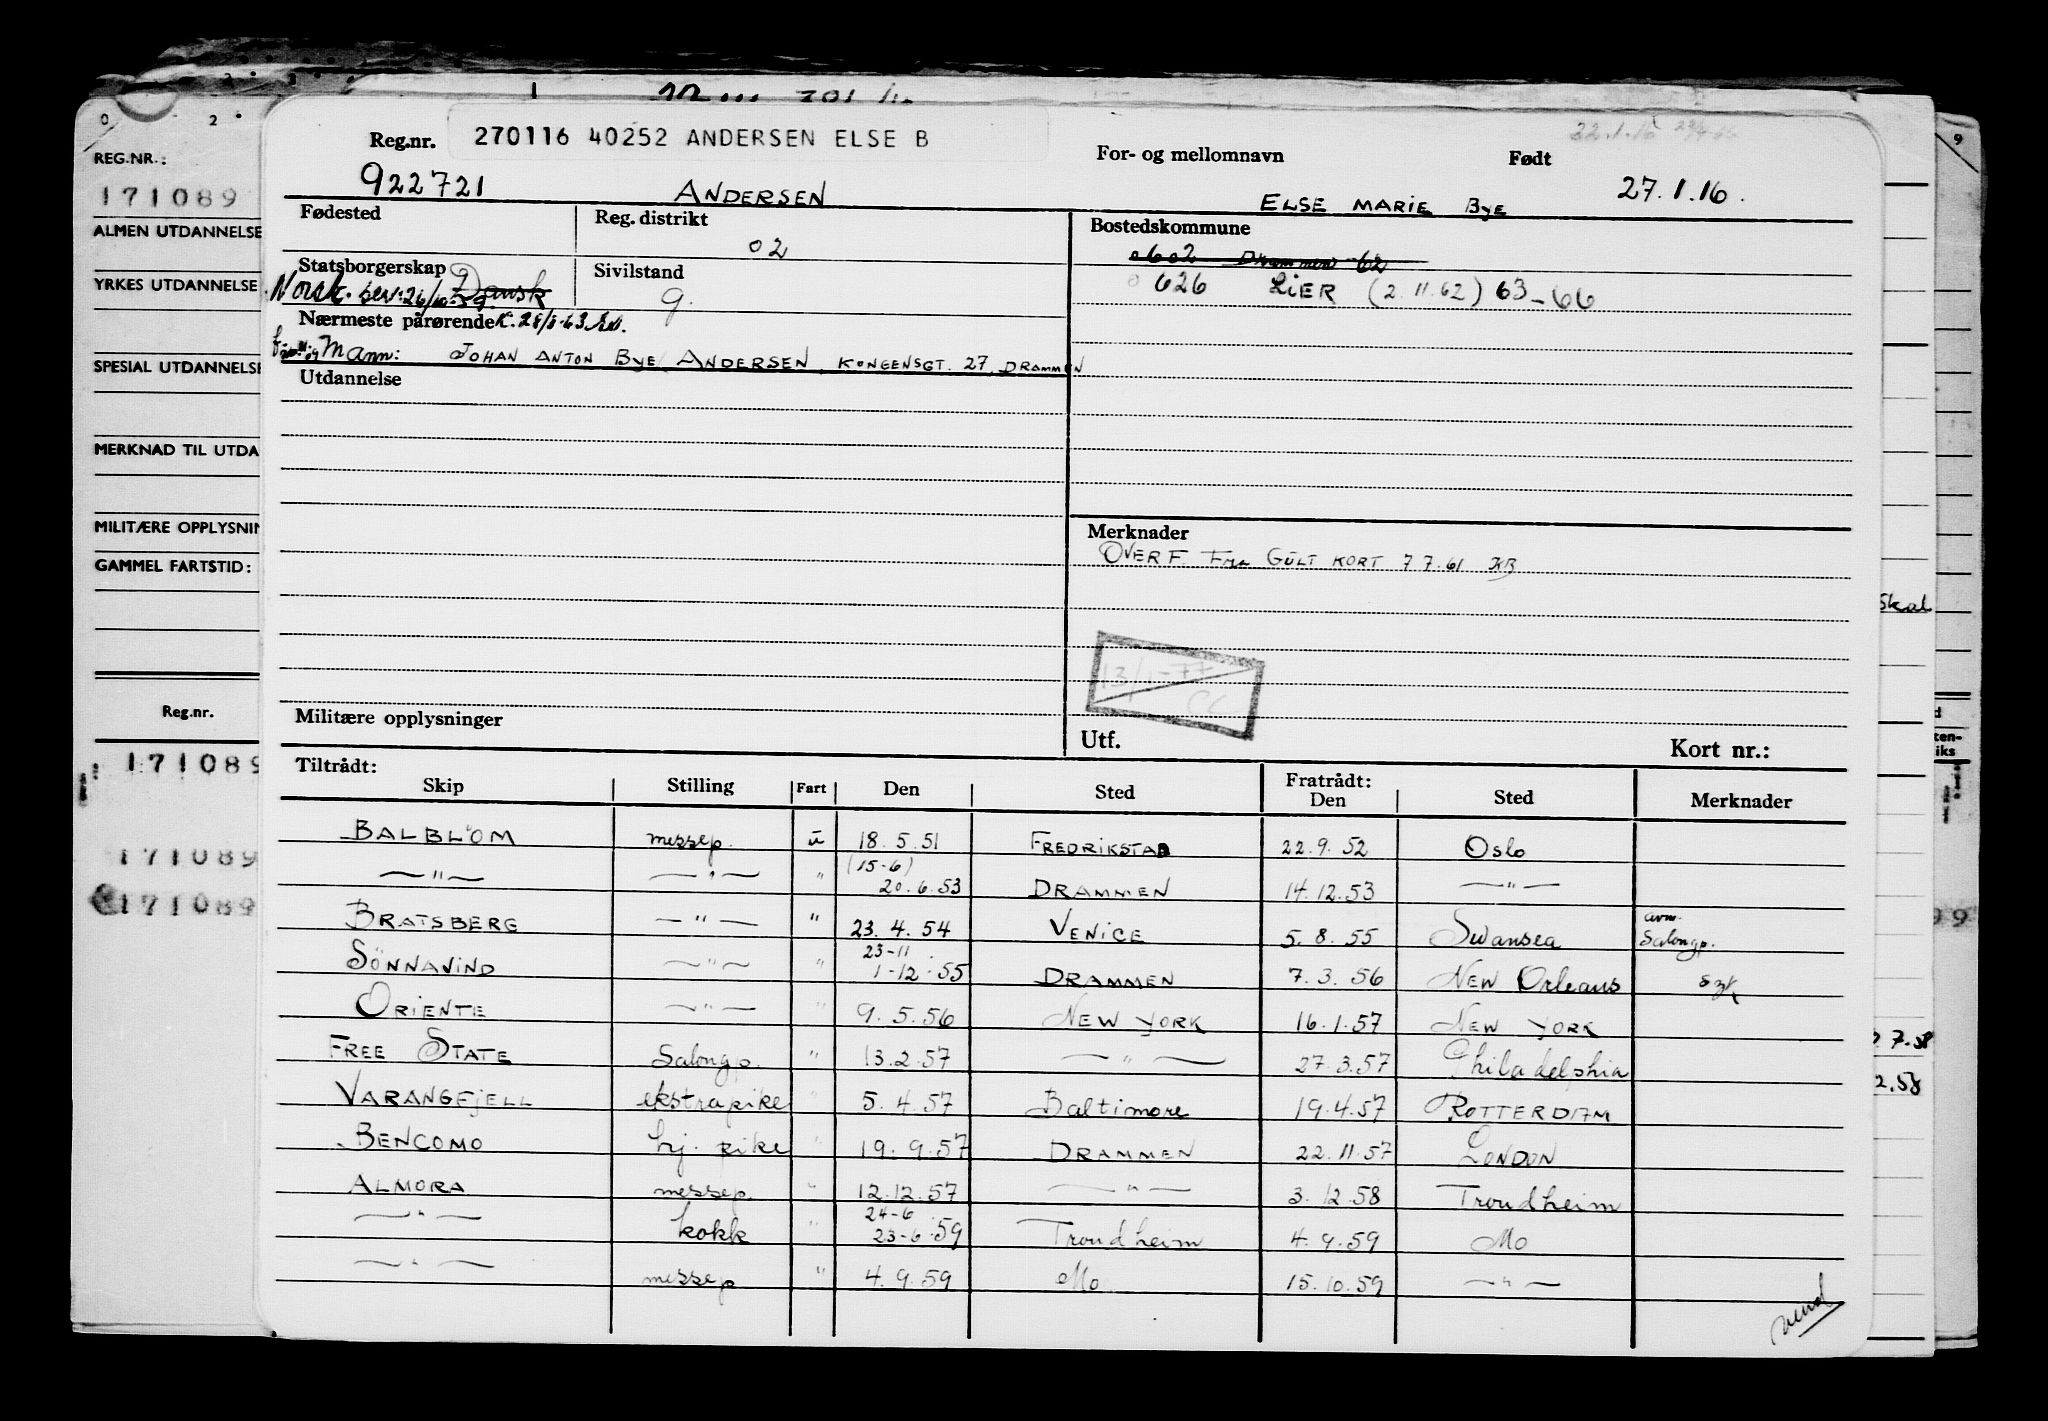 0 2
REG.NR.:
171089
ALMEN UTDANNELSE
YRKES UTDANNELSE
SPESIAL UTDANNELSE
MERKNAD TIL UTDA
MILITÆRE OPPLYSNIN
GAMMEL FARTSTID:
Reg.nr.
171089
171089
171089
Reg.nr. 270116 40252 ANDERSEN ELSE B
For- og mellomnavn Født
922721 ANDERSEN ELSE MARIE BYE 27.1.16.
Fødested Reg. distrikt Bostedskommune
02 0602 Drammen 62
Statsborgerskap Sivilstand
Norsk. bev: 26/10-59 Dansk g. 0626 LIER (2.11.62) 63-66
Nærmeste pårørende
Mann: JOHAN ANTON BYE ANDERSEN, KONGENSGT. 27, DRAMMEN
Utdannelse
Merknader
OVERF. FRA GULT KORT 7 7.61 KB
13/1-77
CC
Militære opplysninger Utf. Kort nr.:
Tiltrådt: Fratrådt:
Skip Stilling Fart Den Sted Den Sted Merknader
BALBLOM messep. u 18.5.51 FREDRIKSTAD 22.9.52 Oslo
—"— —"— " (15-6) 20.6.53 DRAMMEN 14.12.53 —"—
BRATSBERG —"— " 23.4.54 VENICE 5.8.55 Swansea avm. Salongp.
SÖNNAVIND —"— " 23-11 1-12.55 DRAMMEN 7.3.56 NEW Orleans syk
ORIENTE —"— " 9.5.56 NEW YORK 16.1.57 NEW YORK
FREE STATE Salongp. " 13.2.57 —"— 27.3.57 Philadelphia
VARANGFJELL ekstrapike " 5.4.57 Baltimore 19.4.57 ROTTERDAM
BENCOMO hj. pike " 19.9.57 DRAMMEN 22.11.57 LONDON
ALMORA messep. " 12.12.57 —"— 3.12.58 Trondheim
—"— kokk " 24-6 23-6.59 Trondheim 4.9.59 Mo
—"— messep " 4.9.59 Mo 15.10.59 —"—
vend
9
Skal
7.58
2.58